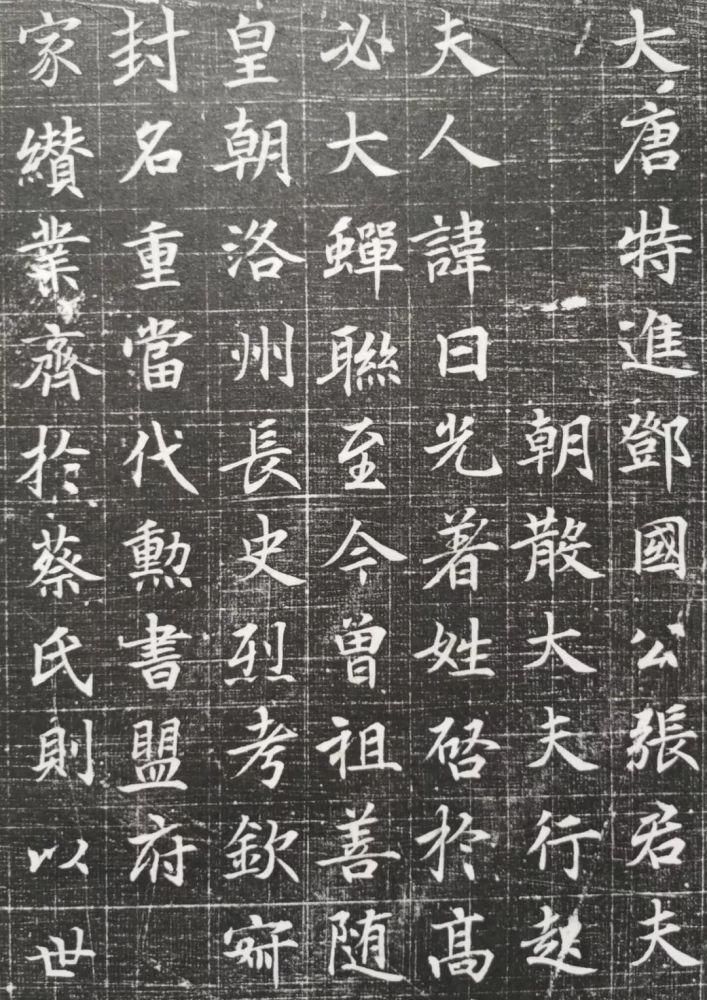 大唐特進鄧國公張君夫
朝散大夫行
夫人諱日光著姓啓於高
必大蟬聯至今曾祖善随
皇朝洛州長史烈考欽寂
封名重當代勲書盟府
家纘業齊於蔡氏則以世